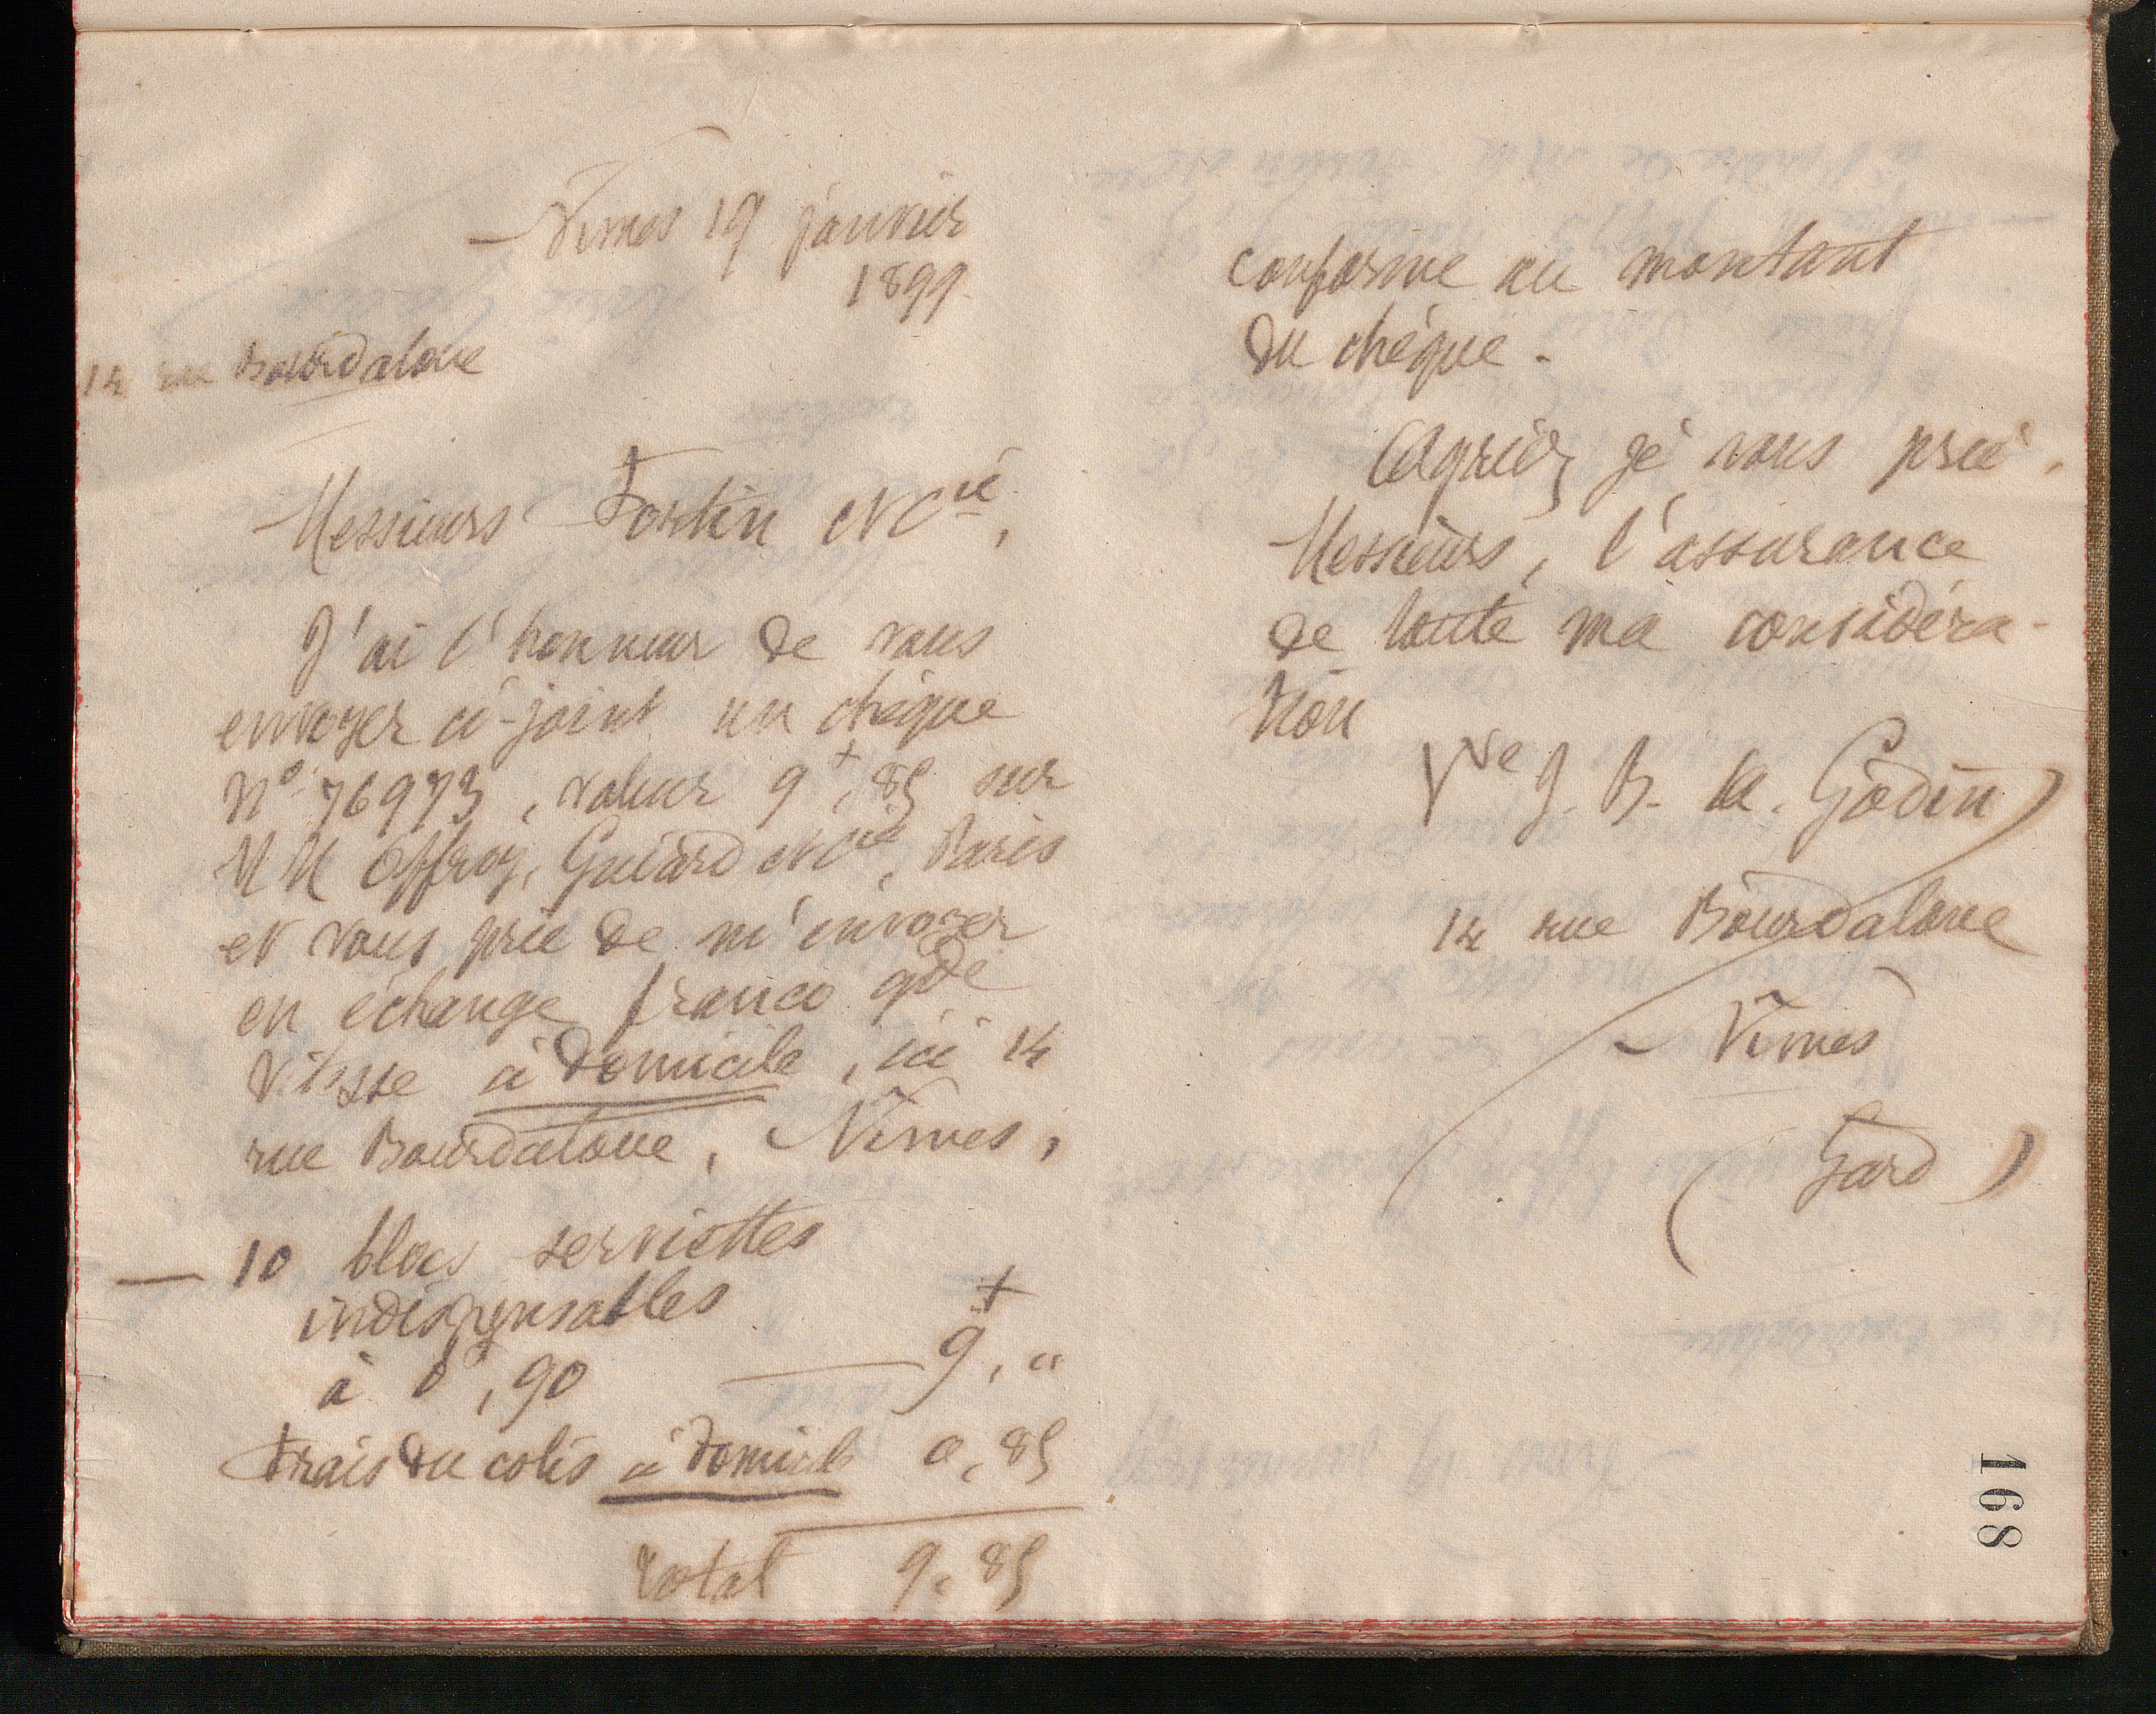 Nimes 19 janvier
1899.
14 rue Bourdaloue
Messieurs Fortin et Cie,
J'ai l'honneur de vous
envoyer ci-joint un chèque
No 76973, valeur 9f,85 sur
MM Offroy, Guiard et Cie, Paris
et vous prie de m'envoyer
en échange franco gde
vitesse à domicile, ici 14
rue Bourdaloue, Nîmes,
— 10 blocs serviettes
indispensables
à 0f,90 — 9f,"
Frais du colis à domicile 0,85
Total 9,85
conforme au montant
du chèque.
Agréez je vous prie,
Messieurs, l'assurance
de toute ma considéra-
tion
Vve J. B. A. Godin
14 rue Bourdaloue
Nîmes
(Gard)
168